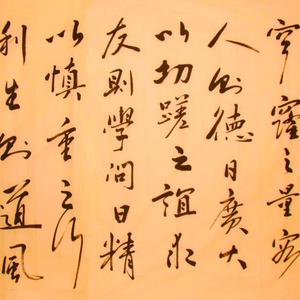 穹窿之量容
人則德日廣大
以切蹉之誼取
友則學問日精
以慎重之行
利生則道風